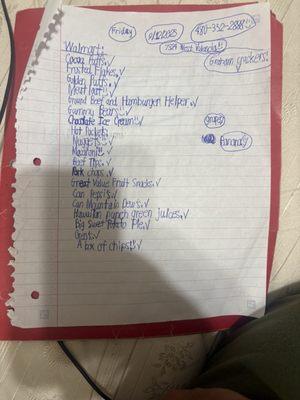 Friday
480-352-2888!!
7529 West Palencia!!
Graham Crackers!
Walmart:
Cocoa Puffs.✓
Frosted Flakes.✓
Golden Puffs.✓
Meat loaf!✓
Ground Beef and Hamburger Helper.✓
Gummy Bears!✓
Chocolate Ice Cream!!✓
grapes
Hot Pockets.
Nuggets!✓
Bananas!✓
Macaroni!✓
Beef Tips.✓
Pork chops.✓
Great Value Fruit Snacks.✓
Can Pepsi's✓
Can Mountain Dew's.✓
Hawaiian punch green juices.✓
Big Sweet Potato Pie.✓
A box of chips!!✓